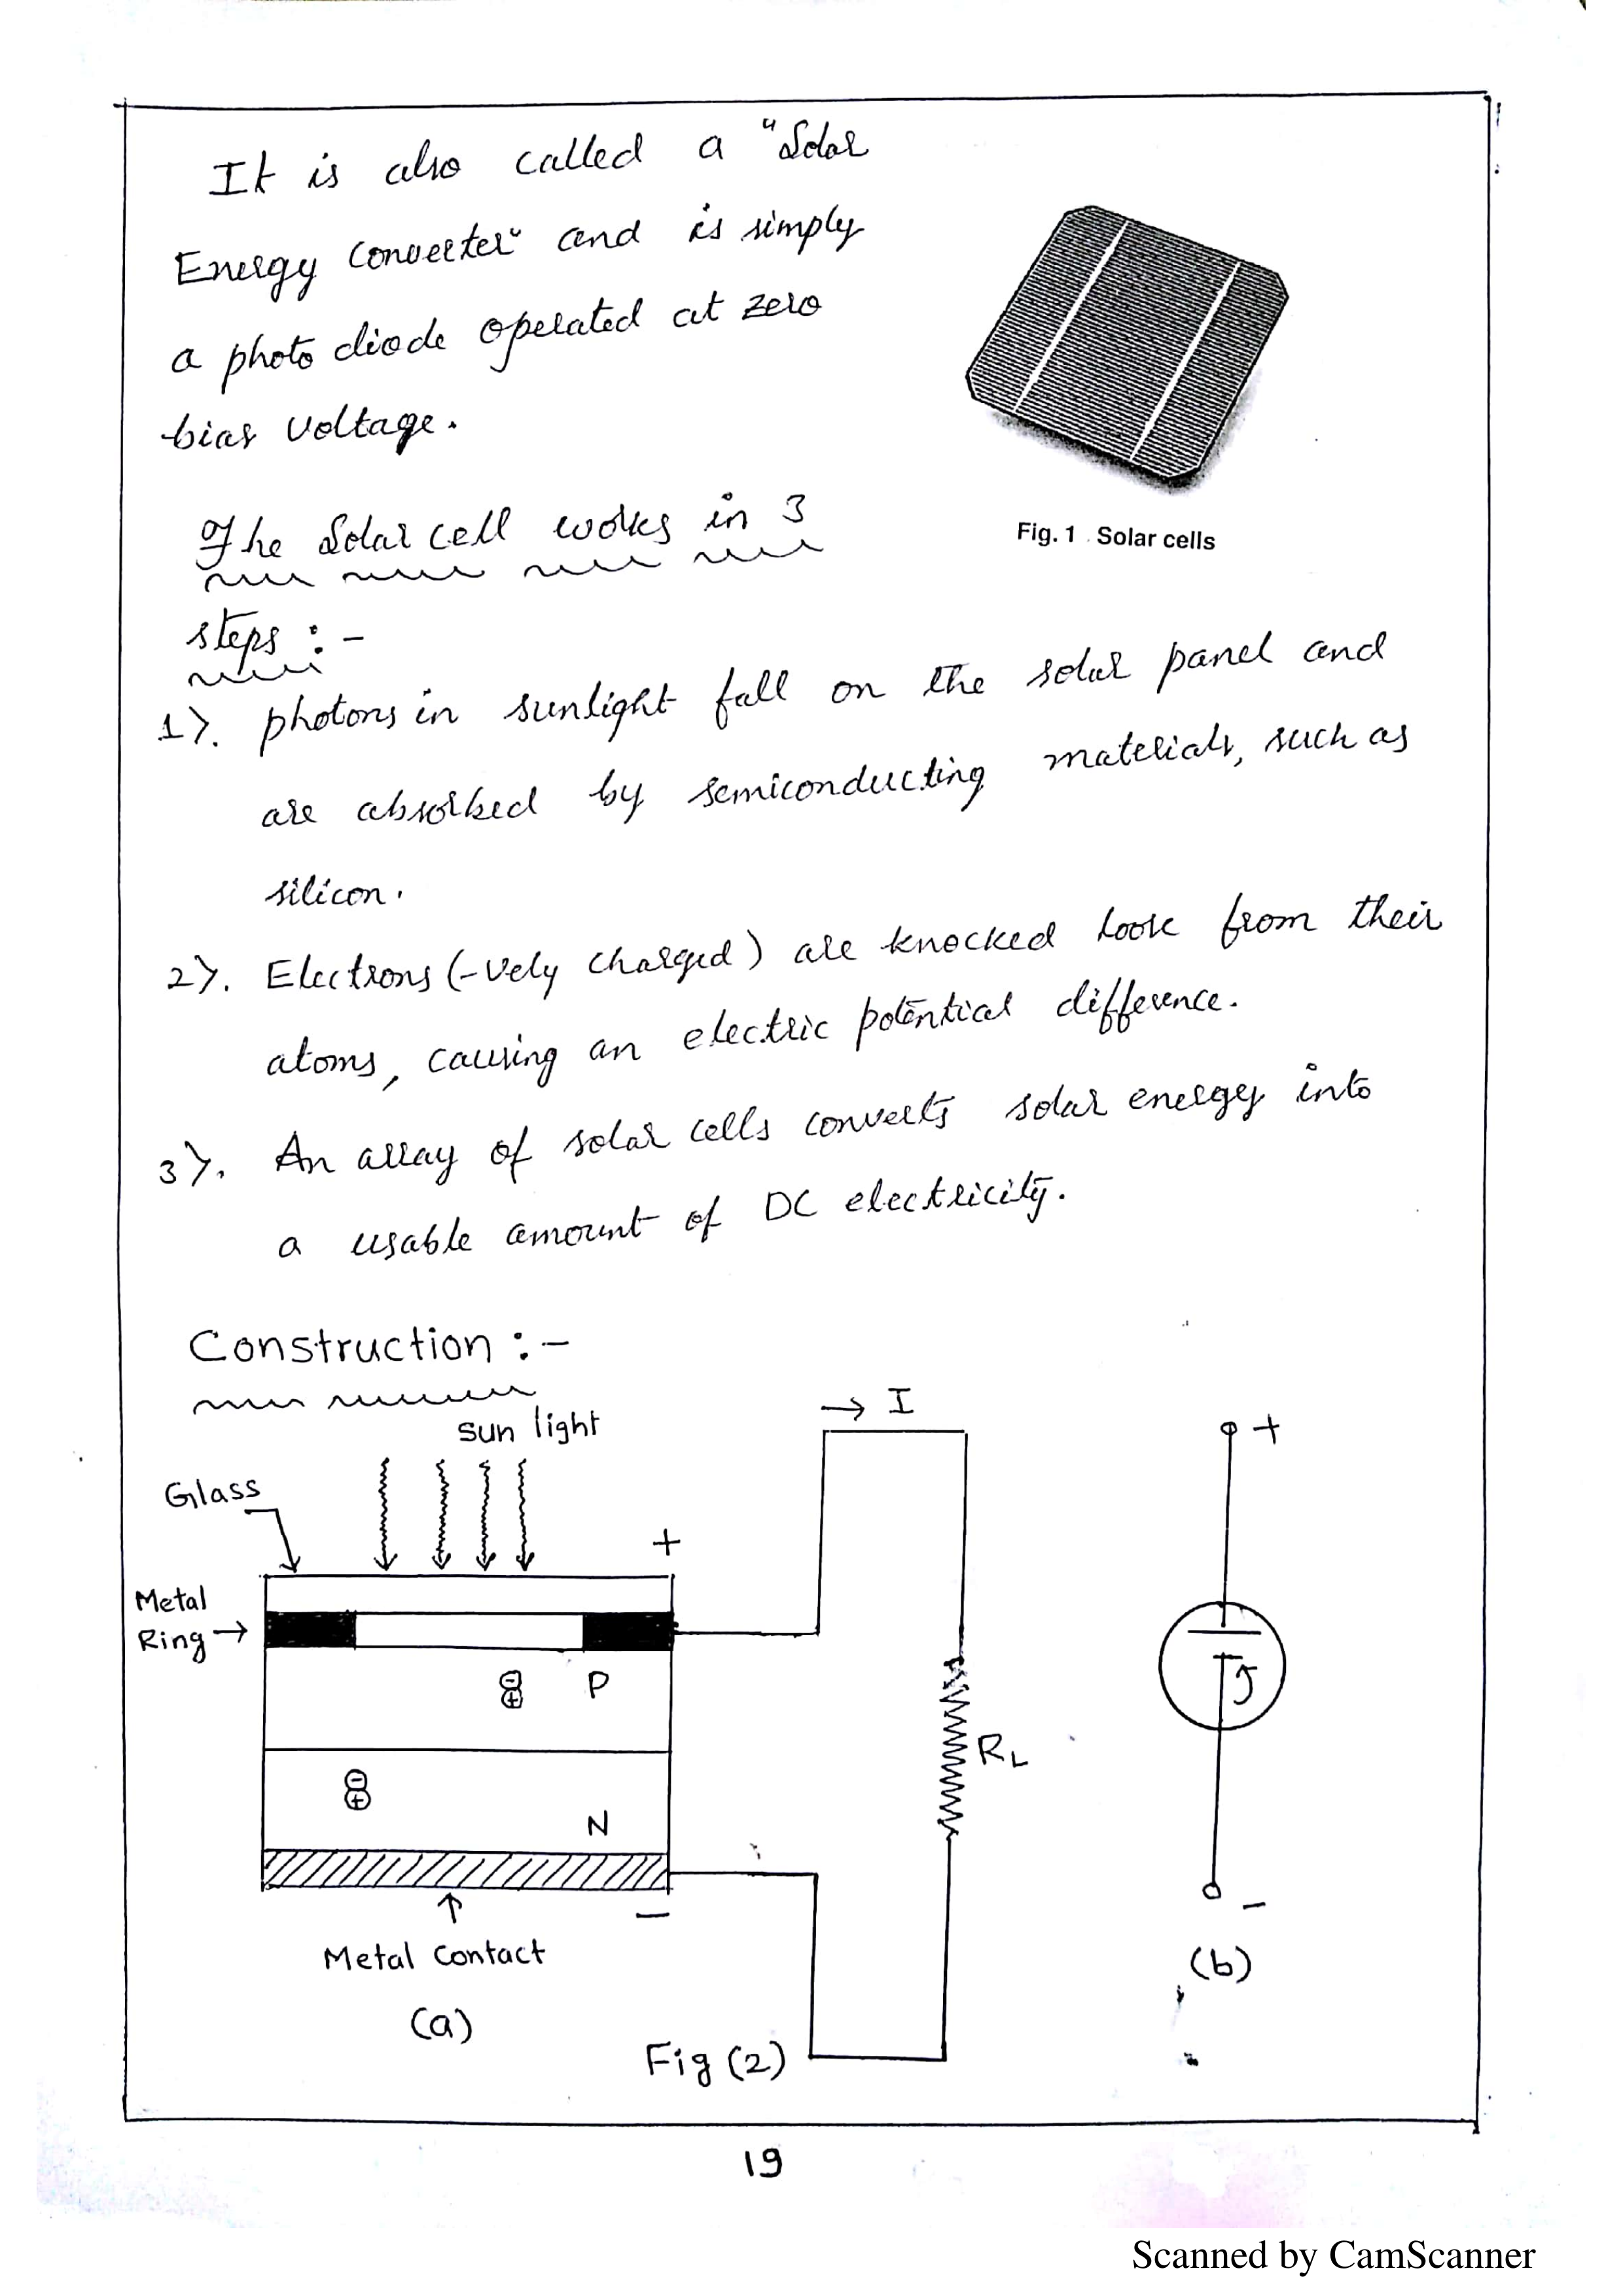 It is also called a "Solar
Energy Converter" and is simply
a photo diode operated at zero
bias voltage.
Fig. 1 Solar cells
The Solar cell works in 3
steps :-
1). photons in sunlight fall on the solar panel and
are absorbed by semiconducting materials, such as
silicon.
2). Electrons (-vely charged) are knocked loose from their
atoms, causing an electric potential difference.
3). An array of solar cells converts solar energy into
a usable amount of DC electricity.
Construction :-
sun light
Glass
Metal
Ring →
+
P
N
-
↑
Metal Contact
(a)
→ I
RL
Fig (2)
+
-
(b)
19
Scanned by CamScanner